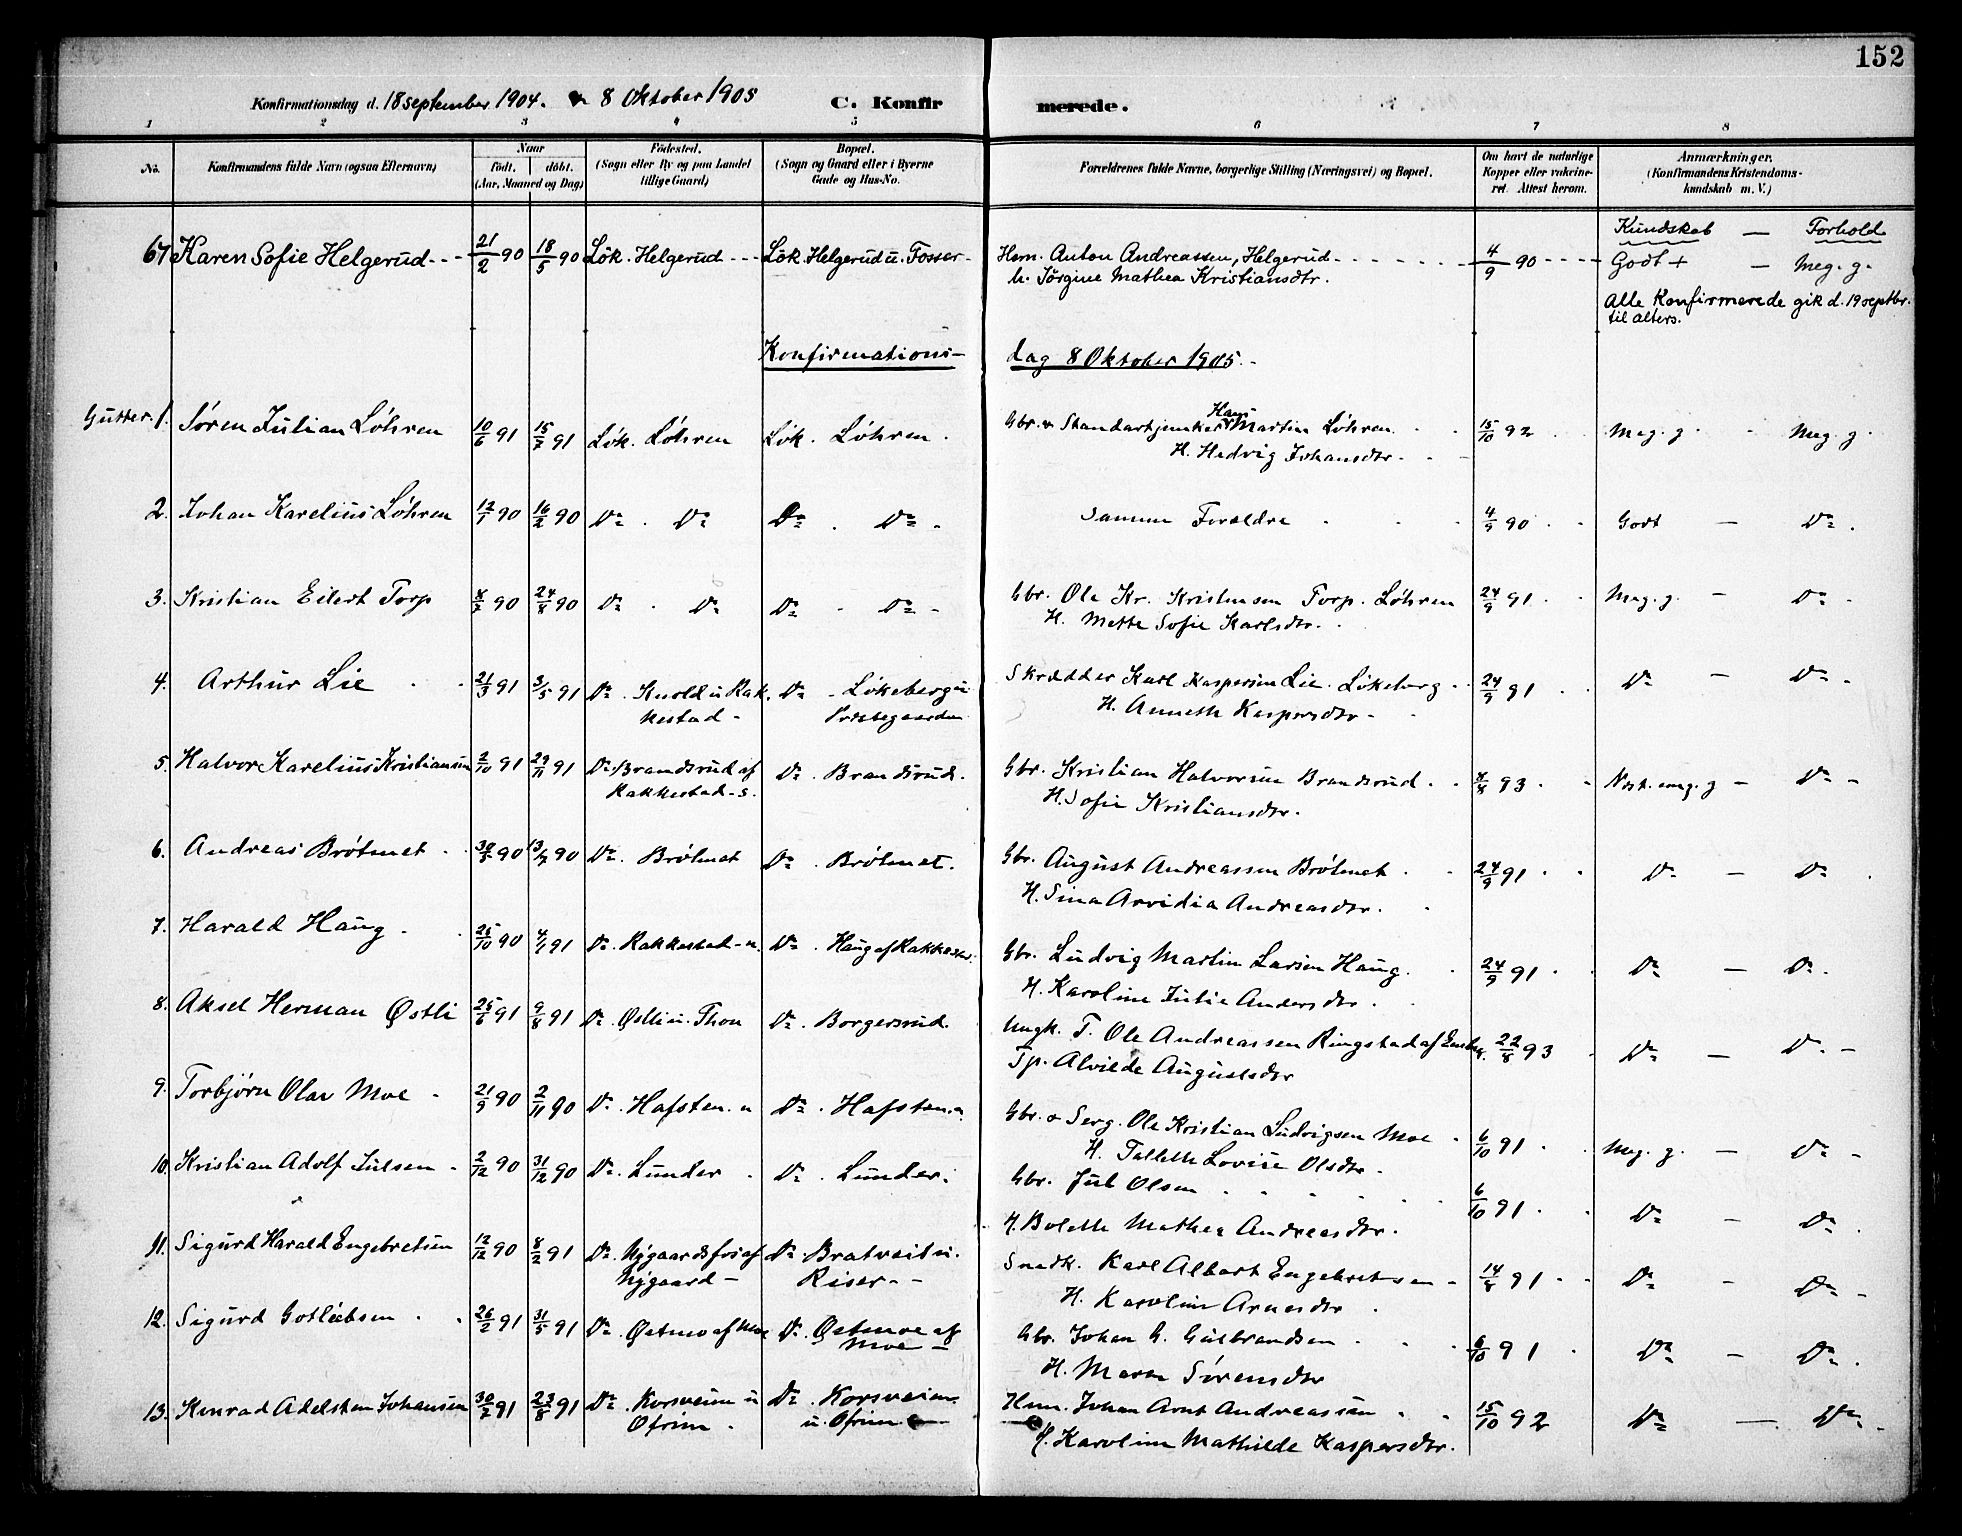 152
Konfirmationsdag d. 18 september 1904. 8 Oktober 1905 C. Konfirmerede.
1 2 3 4 5 6 7 8
No. Konfirmandens fulde Navn (ogsaa Efternavn) Naar født. døbt. (Aar, Maaned og Dag) Fødested. (Sogn eller By og paa Landet tillige Gaard) Bopæl. (Sogn og Gaard eller i Byerne Gade og Hus-No. Forældrenes fulde Navne, borgerlige Stilling (Næringsvei) og Bopæl. Om havt de naturlige Kopper eller vakcineret. Attest herom. Anmærkninger. (Konfirmandens Kristendomskundskab m. V.)
Kundskab — Forhold
67 Karen Sofie Helgerud 21/2 90 18/5 90 Løk. Helgerud Løk. Helgerud u. Fosser Hem. Anton Andreassen, Helgerud 4/9 90 Godt + — Meg. g.
h. Jørgine Mathea Kristiansdtr.
Alle Konfirmerede gik d. 19 septbr. til alters.
Konfirmations- dag 8 Oktober 1905.
Gutter. 1. Søren Julian Løhren 10/6 91 15/7 91 Løk. Løhren Løk. Løhren. Gbr. & Standartjunker Hans Martin Løhren 15/10 92 Meg. g. Meg. g.
H. Hedvig Johansdtr.
2. Johan Karelius Løhren 12/1 90 16/2 90 Do. Do Do. Do. Samme Forældre 4/9 90 Godt — Do.
3. Kristian Eilert Torp 8/7 90 24/8 90 Do. Do Do. Do Gbr. Ole Kr. Kristensen Torp. Løhren 24/9 91 Meg. g. — Do
H. Mette Sofie Karlsdtr.
4. Arthur Lie 21/3 91 3/5 91 Do. Knold u Rakkestad Do. Løkeberg u Prestegaarden Skrædder Karl Kaspersen Lie. Løkeberg 24/9 91 Do — Do
H. Annette Kaspersdtr
5. Halvor Karelius Kristiansen 2/10 91 29/11 91 Do. Brandsrud af Rakkestad-s. Do. Brandsrud. Gbr. Kristian Halvorsen Brandsrud 4/8 93 Nest. meg. g — Do
H. Sofie Kristiansdtr.
6. Andreas Brøtmet 30/5 90 13/7 90 Do. Brøtmet Do. Brøtmet. Gbr. August Andreassen Brøtmet 24/9 91 Do — Do
H. Sina Arvidia Andreasdtr.
7. Harald Haug 25/10 90 4/1 91 Do. Rakkestad-n. Do. Haug af Rakkestad. Gbr. Ludvig Martin Larsen Haug. 24/9 91 Do — Do.
H. Karoline Julie Andersdtr.
8. Aksel Herman Østli 25/6 91 9/8 91 Do. Østli u. Thon Do. Borgersrud. Ungk. T. Ole Andreassen Ringstad af Eneb. 22/8 93 Do — Do.
Tp. Alvilde Augustsdtr
9. Torbjørn Olav Moe 21/9 90 2/11 90 Do. Hafsten. n Do. Hafsten. n Gbr. & Serg. Ole Kristian Ludvigsen Moe 6/10 91 Meg. g. — Do
H. Tallette Lovise Olsdtr.
10. Kristian Adolf Julsen 2/12 90 31/12 90 Do. Lunder Do. Lunder. Gbr. Jul Olsen 6/10 91 Do — Do.
H. Bolette Mathea Andreasdtr.
11. Sigurd Harald Engebretsen 12/12 90 8/2 91 Do. Nygaardsfos af Nygaard Do. Bratveit u. Riser Snedk. Karl Albert Engebretsen 14/8 91 Do — Do
H. Karoline Arnesdtr
12. Sigurd Gotliebsen 26/2 91 31/5 91 Do. Østmo af Moe Do. Østmoe af Moe Gbr. Johan G. Gulbrandsen 6/10 91 Do — Do.
H. Maren Sørensdtr
13. Konrad Adelsten Johansen 30/7 91 23/8 91 Do. Korsveien u Ofrim Do. Korsveien u Ofrim Hem. Johan Arnt Andreassen 15/10 92 Do — Do
H. Karoline Mathilde Kaspersdtr.